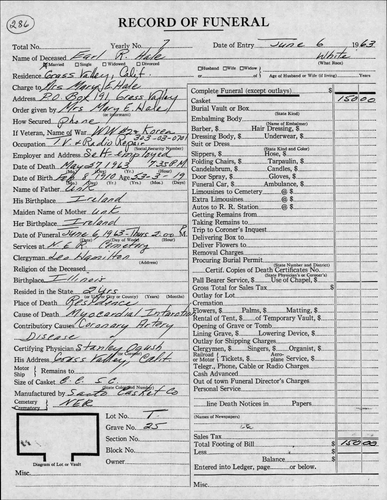 286
RECORD OF FUNERAL
Total No. Yearly No. 7 Date of Entry June 6 1963
Name of Deceased Earl R. Hale White
Married Single Widowed Divorced Husband Wife Widow of (What Race)
Residence Grass Valley, Calif. Age of Husband or Wife (if living) Years
Charge to Mrs Mary E. Hale
Address P.O. Box 191 Grass Valley
Order given by Mrs Mary E. Hale
How Secured phone
If Veteran, Name of War Korea
Occupation TV & Radio Repair
Employer and Address Self-employed
Date of Death May 27 1963 7:35 P.M.
Date of Birth Feb 8 1910
Name of Father Unk
His Birthplace Ireland
Maiden Name of Mother Unk
Her Birthplace Ireland
Date of Funeral June 6, 1963 Thurs 2:00 P.M.
Services at N.E.R. Cemetery
Clergyman Leo Hamilton
Religion of the Deceased
Birthplace Illinois
Resided in the State 2 yrs
Place of Death Residence
Cause of Death Myocardial Infarction
Contributory Causes Coronary Artery
Disease
Certifying Physician Stanley
His Address Grass Valley, Calif
Motor Ship Remains to
Size of Casket
Manufactured by Santo Casket Co
Cemetery Crematory NER
Lot No. T
Grave No. 25
Section No.
Block No.
Owner
Diagram of Lot or Vault
Misc.
Complete Funeral (except outlays) $
Casket 150 00
Burial Vault or Box
(State Kind)
Embalming Body
(Name of Embalmer)
Barber, $ Hair Dressing, $
Dressing Body, $ Underwear, $
Suit or Dress
(State Kind and Color)
Slippers, $ Hose, $
Folding Chairs, $ Tarpaulin, $
Candelabrum, $ Candles, $
Door Spray, $ Gloves, $
Funeral Car, $ Ambulance, $
Limousines to Cemetery @ $
Extra Limousines @ $
Autos to R. R. Station @ $
Getting Remains from
Taking Remains to
Trip to Coroner's Inquest
Delivering Box to
Deliver Flowers to
Removal Charges
Procuring Burial Permit
(State Number and District)
Certif. Copies of Death Certificates No.
Pall Bearer Service, $ Use of Chapel, $
Gross Total for Sales Tax $
Outlay for Lot
Cremation
Flowers, $ Palms, $ Matting, $
Rental of Tent, $ of Temporary Vault, $
Opening of Grave or Tomb
Lining Grave, $ Lowering Device, $
Outlay for Shipping Charges
Clergymen, $ Singers, $ Organist, $
Railroad or Motor $ Tickets, $ Aeroplane Service, $
Telegr., Phone, Cable or Radio Charges
Cash Advanced
Out of town Funeral Director's Charges
Personal Service
line Death Notices in Papers
(Names of Newspapers)
Sales Tax
Total Footing of Bill $ 150 00
Less
Balance $
Entered into Ledger, page or below.
Misc.